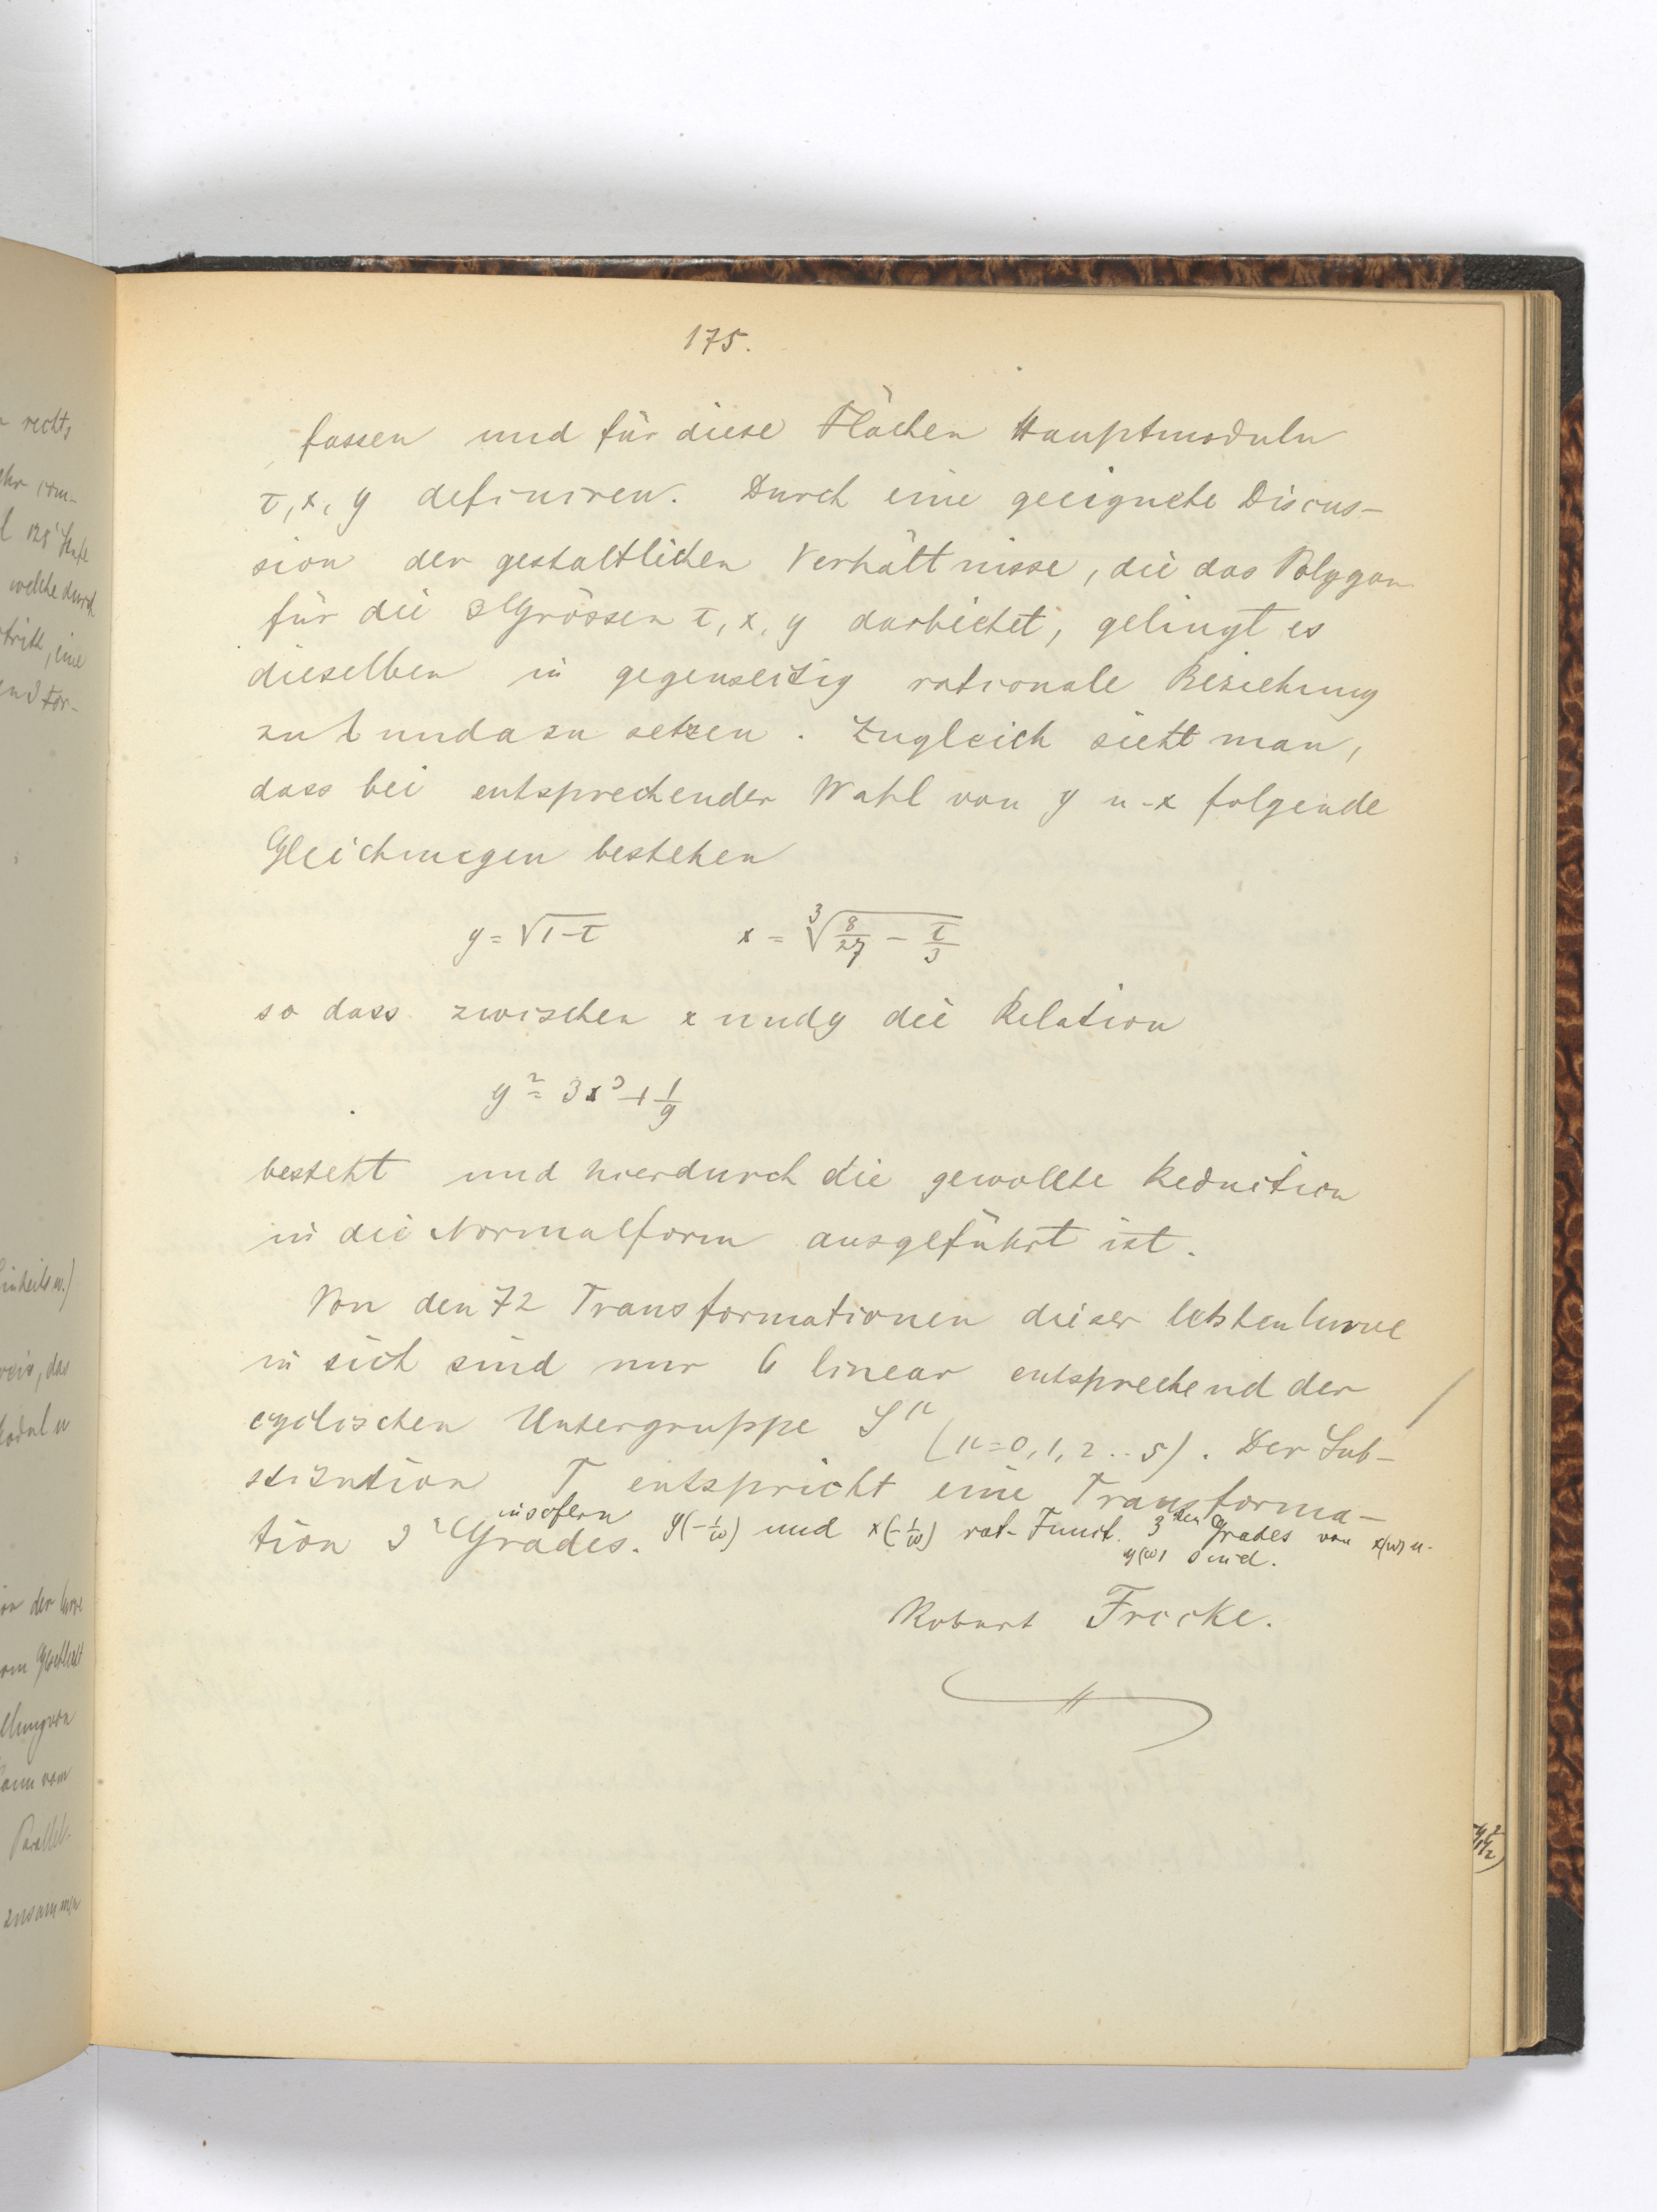 175.
fassen und für diese Flächen Hauptmoduln
τ, x, y definiren. Durch eine geeignete Discus-
sion der gestaltlichen Verhältnisse, die das Polygon
für die 3 Grössen τ, x, y darbietet, gelingt es
dieselben in gegenseitig rationale Beziehung
zu t und a zu setzen. Zugleich sieht man,
dass bei entsprechender Wahl von y u. x folgende
Gleichungen bestehen
y = √1-τ x = ∛8/27 - τ/3
so dass zwischen x und y die Relation
y² = 3x³ + 1/9
besteht und hierdurch die gewollte Reduction
in die Normalform ausgeführt ist.
Von den 72 Transformationen dieser letzten Curve
in sich sind nur 6 linear entsprechend der
cyclischen Untergruppe S^μ (μ=0, 1, 2 .. 5). Der Sub-
stitution T entspricht eine Transforma-
tion 3^r Grades. insofern y(-1/ω) und x(-1/ω) rat. Funct. 3^ten Grades von x(ω) u.
y(ω) sind.
Robert Fricke.
rechts
welche durch
eine
Einheitsw.)
das
Moduln
von der Curve
Parallel-
zusammen